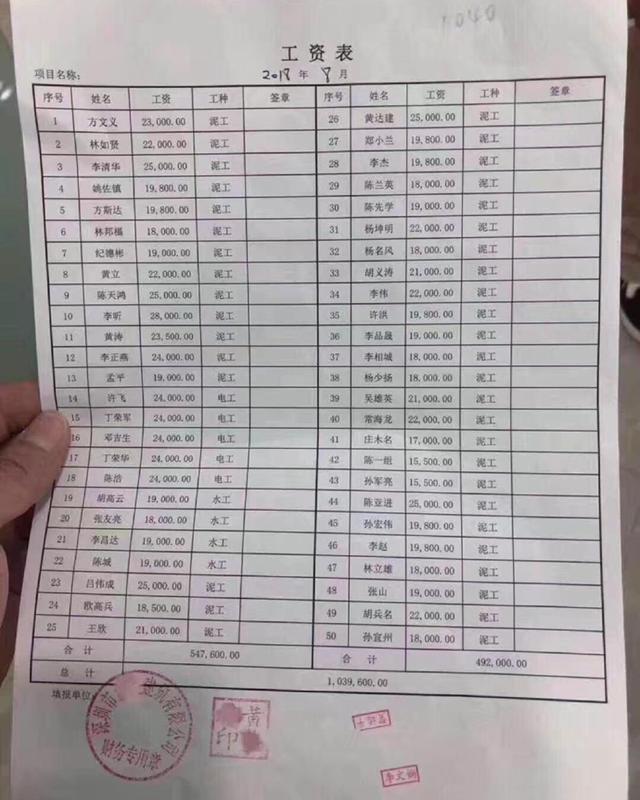 1040
工资表
项目名称: 2018 年 9 月
序号 姓名 工资 工种 签章 序号 姓名 工资 工种 签章
1 方文义 23,000.00 泥工 26 黄达建 25,000.00 泥工
2 林如贤 22,000.00 泥工 27 郑小兰 19,800.00 泥工
3 李清华 25,000.00 泥工 28 李杰 19,800.00 泥工
4 姚佐镇 19,800.00 泥工 29 陈兰英 18,000.00 泥工
5 方斯达 19,800.00 泥工 30 陈先学 19,000.00 泥工
6 林邦福 18,000.00 泥工 31 杨坤明 22,000.00 泥工
7 纪德彬 19,000.00 泥工 32 杨名风 18,000.00 泥工
8 黄立 22,000.00 泥工 33 胡义涛 21,000.00 泥工
9 陈天鸿 25,000.00 泥工 34 李伟 22,000.00 泥工
10 李昕 28,000.00 泥工 35 许洪 19,800.00 泥工
11 黄涛 23,500.00 泥工 36 李品晟 19,000.00 泥工
12 李正燕 24,000.00 泥工 37 李相城 18,000.00 泥工
13 孟平 19,000.00 泥工 38 杨少扬 18,000.00 泥工
14 许飞 24,000.00 电工 39 吴雄英 21,000.00 泥工
15 丁荣军 24,000.00 电工 40 常海龙 22,000.00 泥工
16 邓吉生 24,000.00 电工 41 庄木名 17,000.00 泥工
17 丁荣华 24,000.00 电工 42 陈一组 15,500.00 泥工
18 陈浩 24,000.00 电工 43 孙军亮 15,500.00 泥工
19 胡高云 19,000.00 水工 44 陈亚进 25,000.00 泥工
20 张友亮 18,000.00 水工 45 孙宏伟 19,800.00 泥工
21 李昌达 19,000.00 水工 46 李赵 19,800.00 泥工
22 陈城 19,000.00 水工 47 林立雄 18,000.00 泥工
23 吕伟成 25,000.00 泥工 48 张山 19,000.00 泥工
24 欧高兵 18,500.00 泥工 49 胡兵名 22,000.00 泥工
25 王欣 21,000.00 泥工 50 孙宜州 18,000.00 泥工
合计 547,600.00 合计 492,000.00
总计 1,039,600.00
填报单位:
深圳市 建筑有限公司
财务专用章
黄
印
李文娟